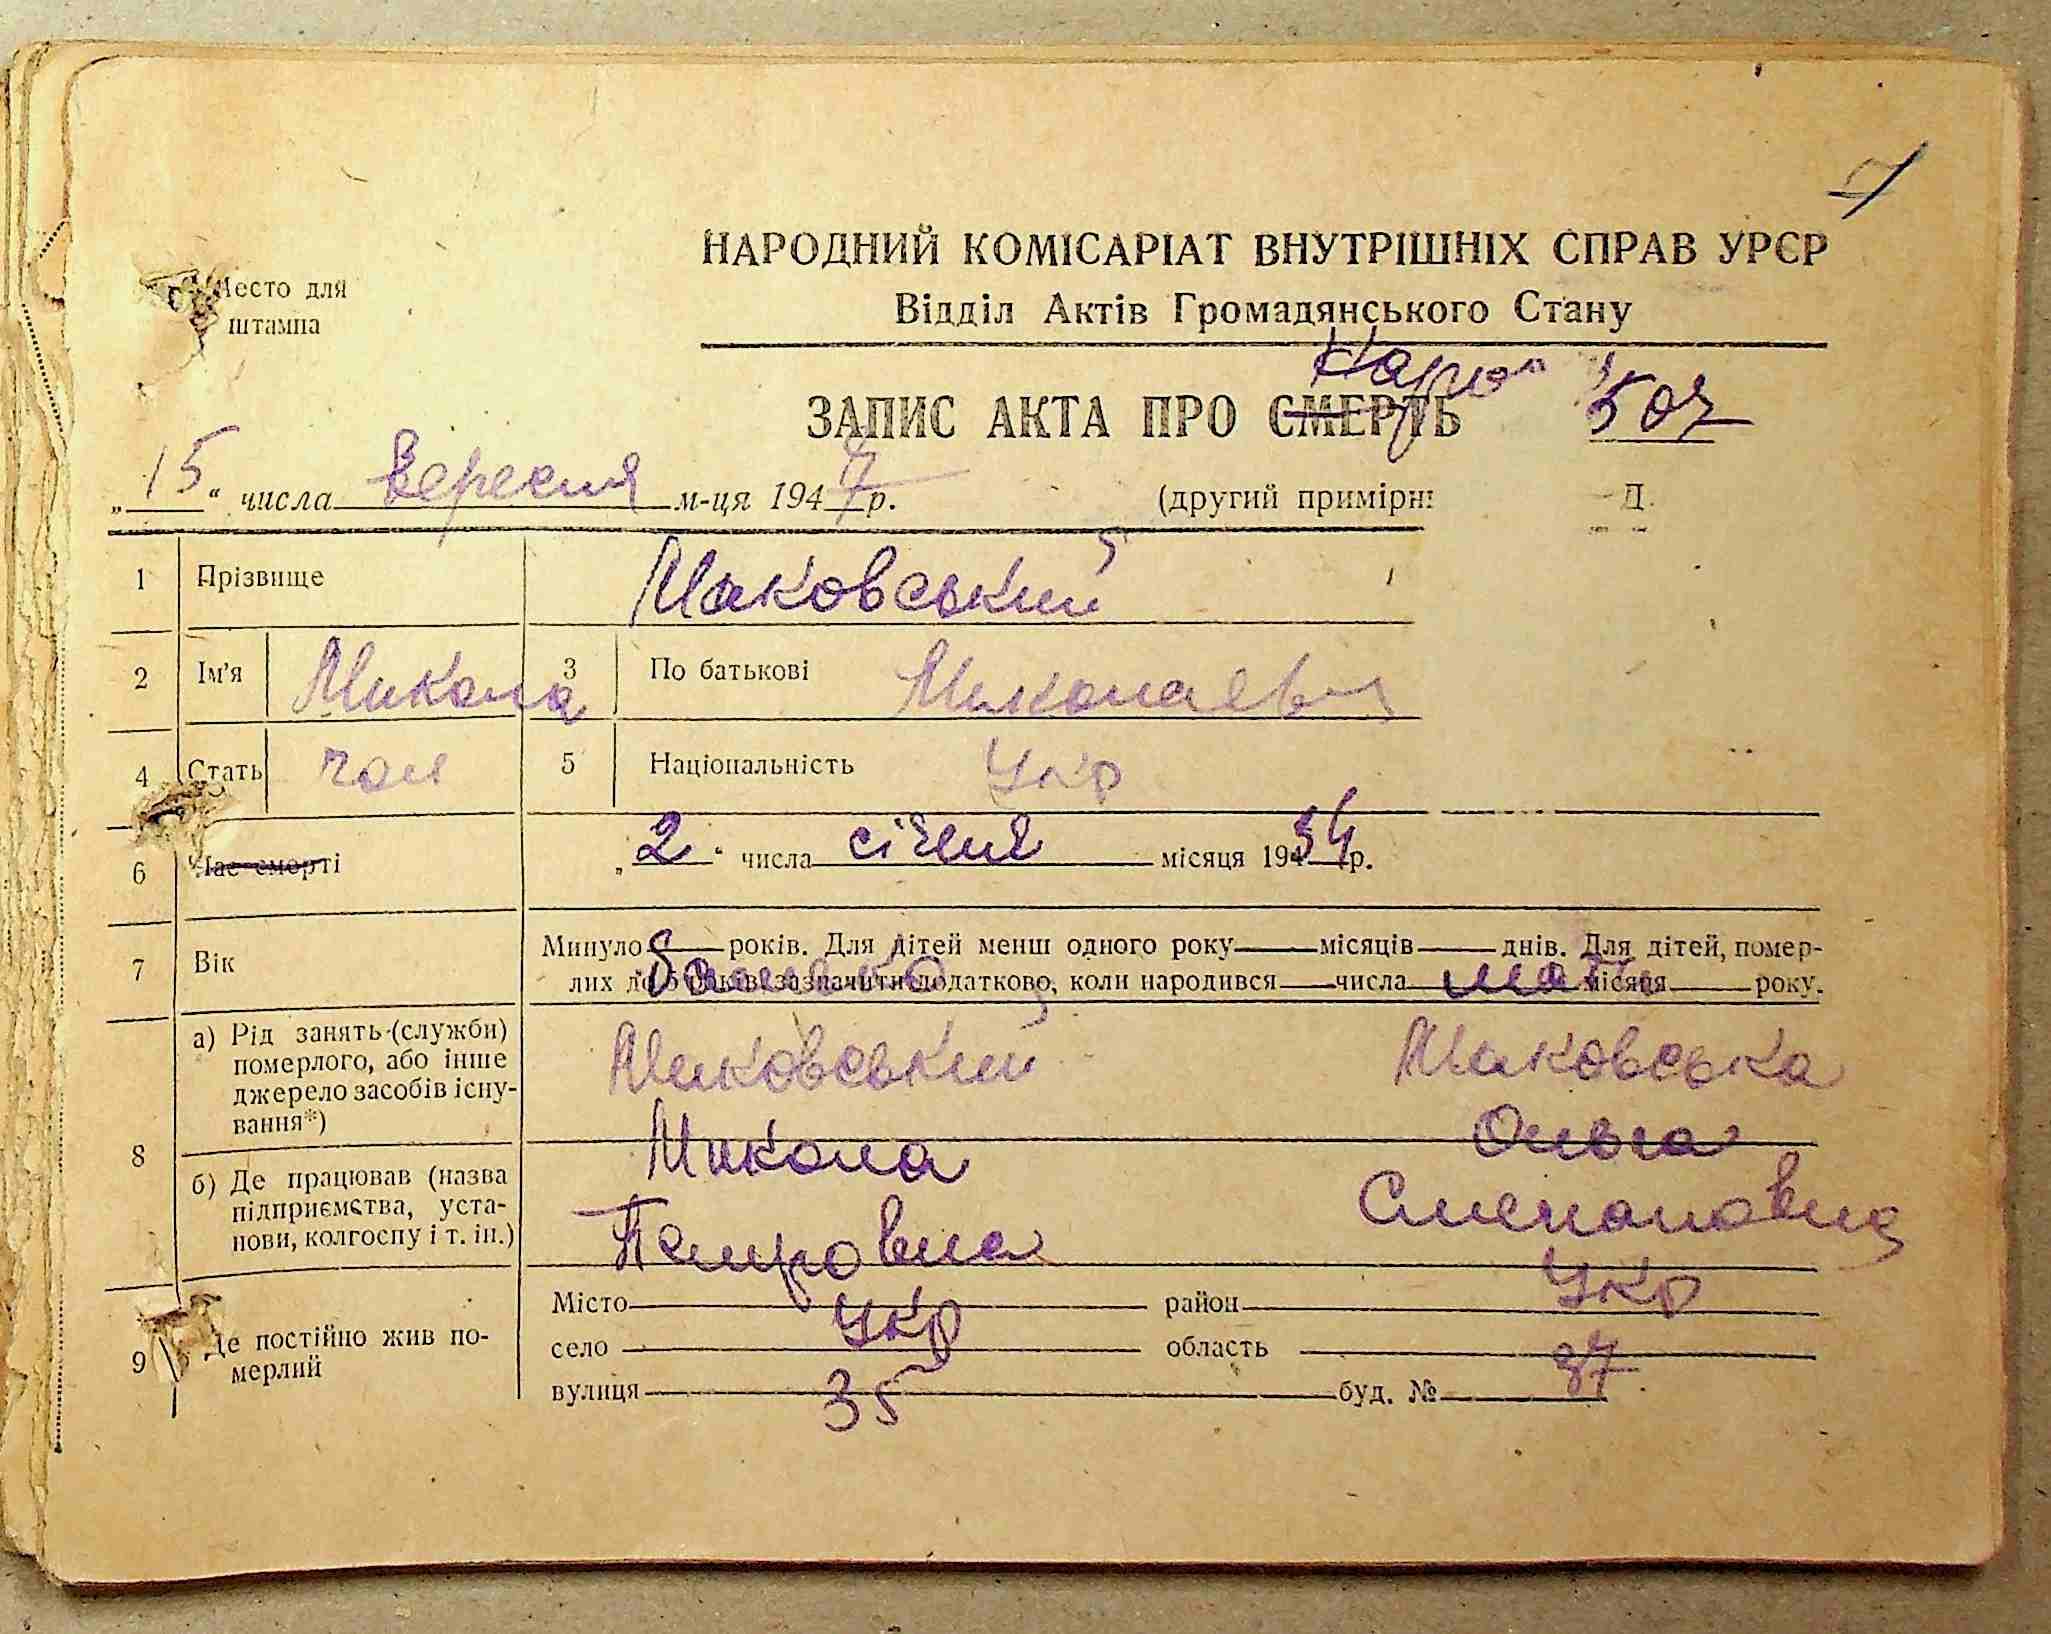 Место для
штампа
НАРОДНИЙ КОМІСАРІАТ ВНУТРІШНІХ СПРАВ УРСР
Відділ Актів Громадянського Стану
Народ
ЗАПИС АКТА ПРО СМЕРТЬ 507
„15“ числа вересня м-ця 1947 р. (другий примірн Д
1 Прізвище Маковський
2 Ім'я Микола 3 По батькові Миколаєвич
4 Стать чол 5 Національність Укр
6 Час смерті „2“ числа січня місяця 1934 р.
7 Вік Минуло років. Для дітей менш одного року місяців днів. Для дітей, помер-
лих до 5 років зазначити додатково, коли народився числа місяця року.
батько мати
8 а) Рід занять (служби) померлого, або інше джерело засобів існу-вання*) Маковський Маковська
Микола Ольга
б) Де працював (назва підприємства, уста-нови, колгоспу і т. ін.) Петрович Степановна
9 Де постійно жив по-мерлий Місто район
Укр Укр
село область
вулиця 35 буд. № 37